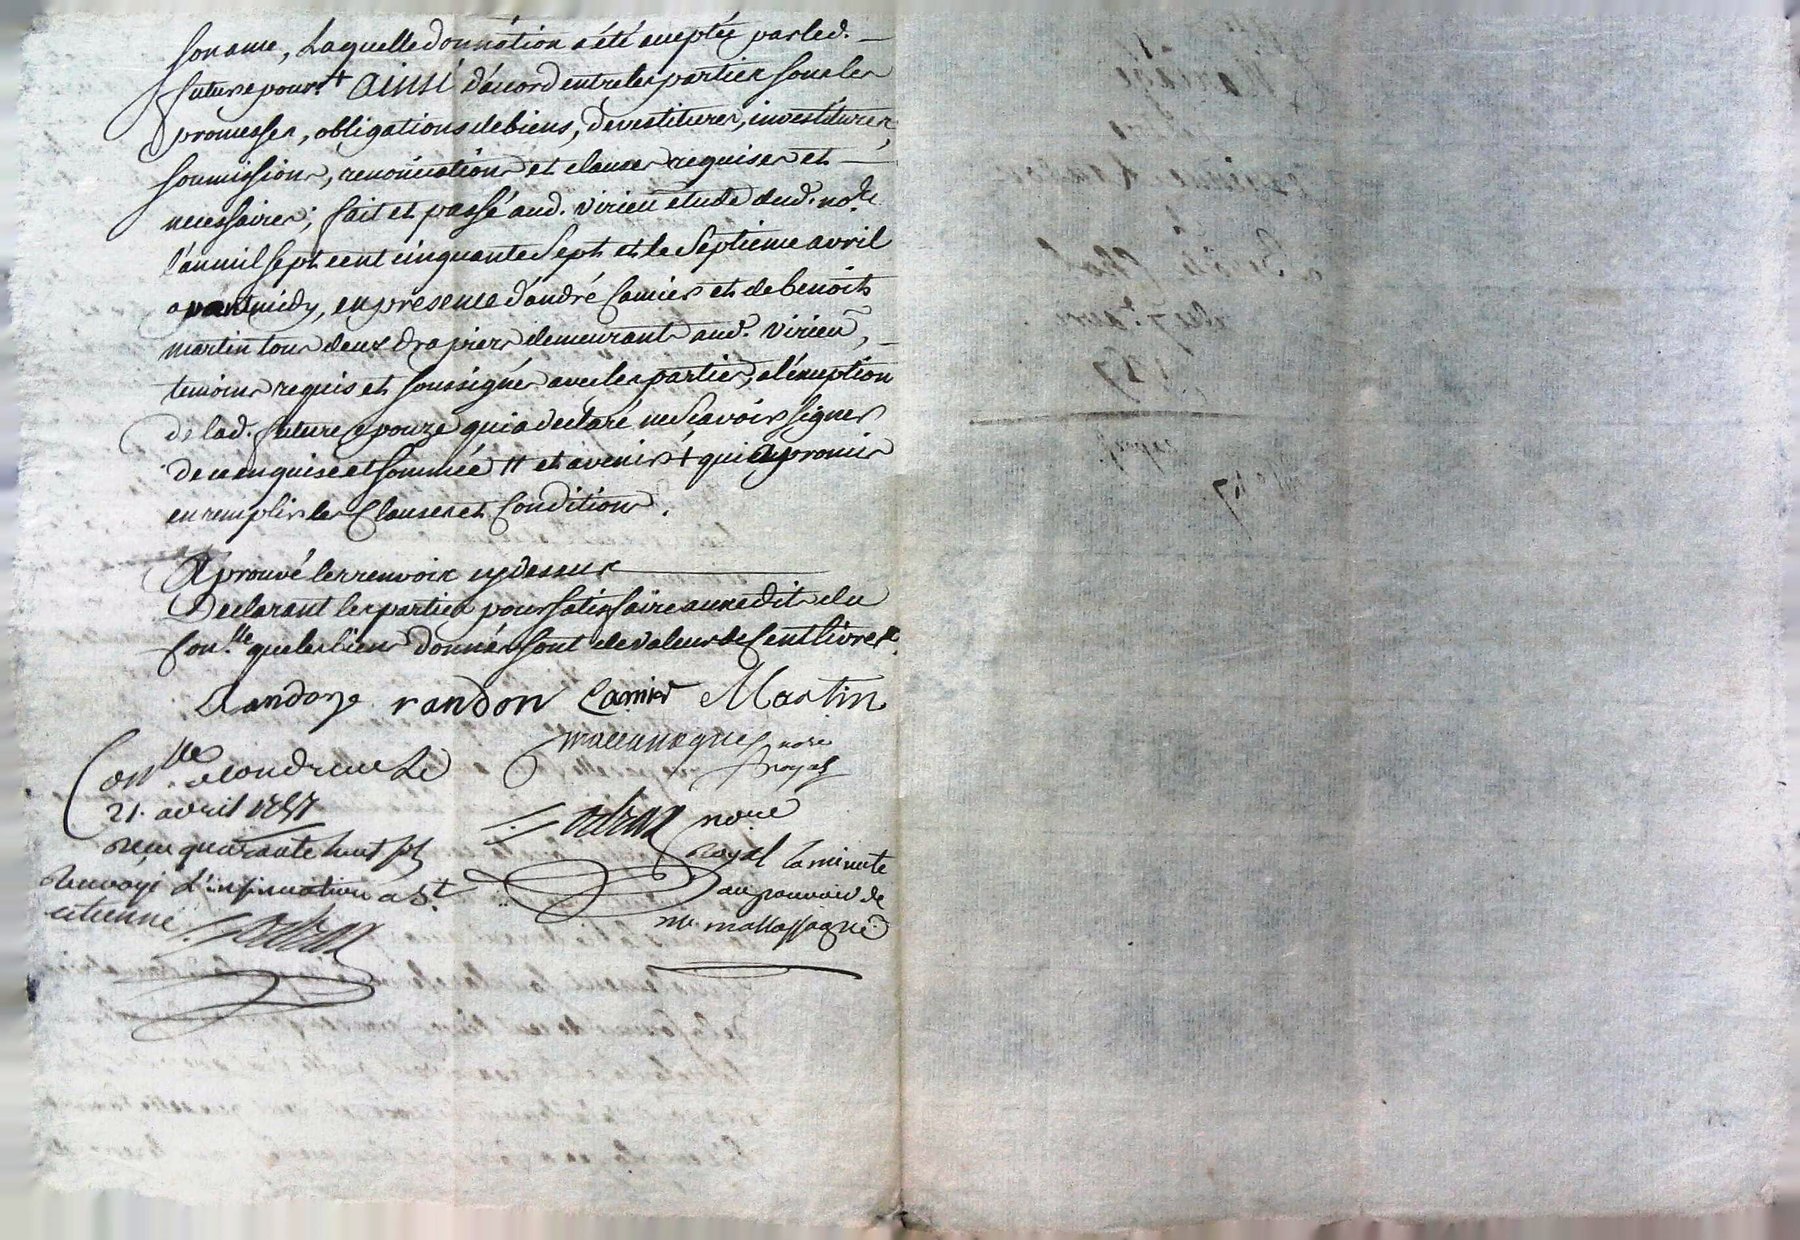 son ame, Laquelle donnation a été acceptée par led.
future pour.+ ainsi d'acord entre les parties sous les
promesses, obligations de biens, devestitures, investitures,
soumissions, renonciations et clauses requises et
necessaires; fait et passé aud. virieu etude dud. no.re
l'an mil sept cent cinquante sept et le septieme avril
avant midy, en presence d'andré Camier et de benoits
martin tous deux drapiers demeurant aud. virieu,
temoins requis et soussignés avec les parties, a l'éxception
de lad. future epouze qui a declaré ne scavoir signer
de ce enquise et sommée # et avenir + qui a promis
en remplir les Clauses et Conditions.
Aprouvé les renvoix cy dessus
Declarant les parties pour satisfaire aux edits du
Con.lle que les biens donnés sont de valeur de Cent livres.
Randon randon Camier Martin
nore
royal
Con.lle a Condrieu Le
21. avril 1757
Reçu quarante huit s
Renvoyé L'insinuation a St.
etienne
nore
Royal La minute
au pouvoir de
Me.
Mariage